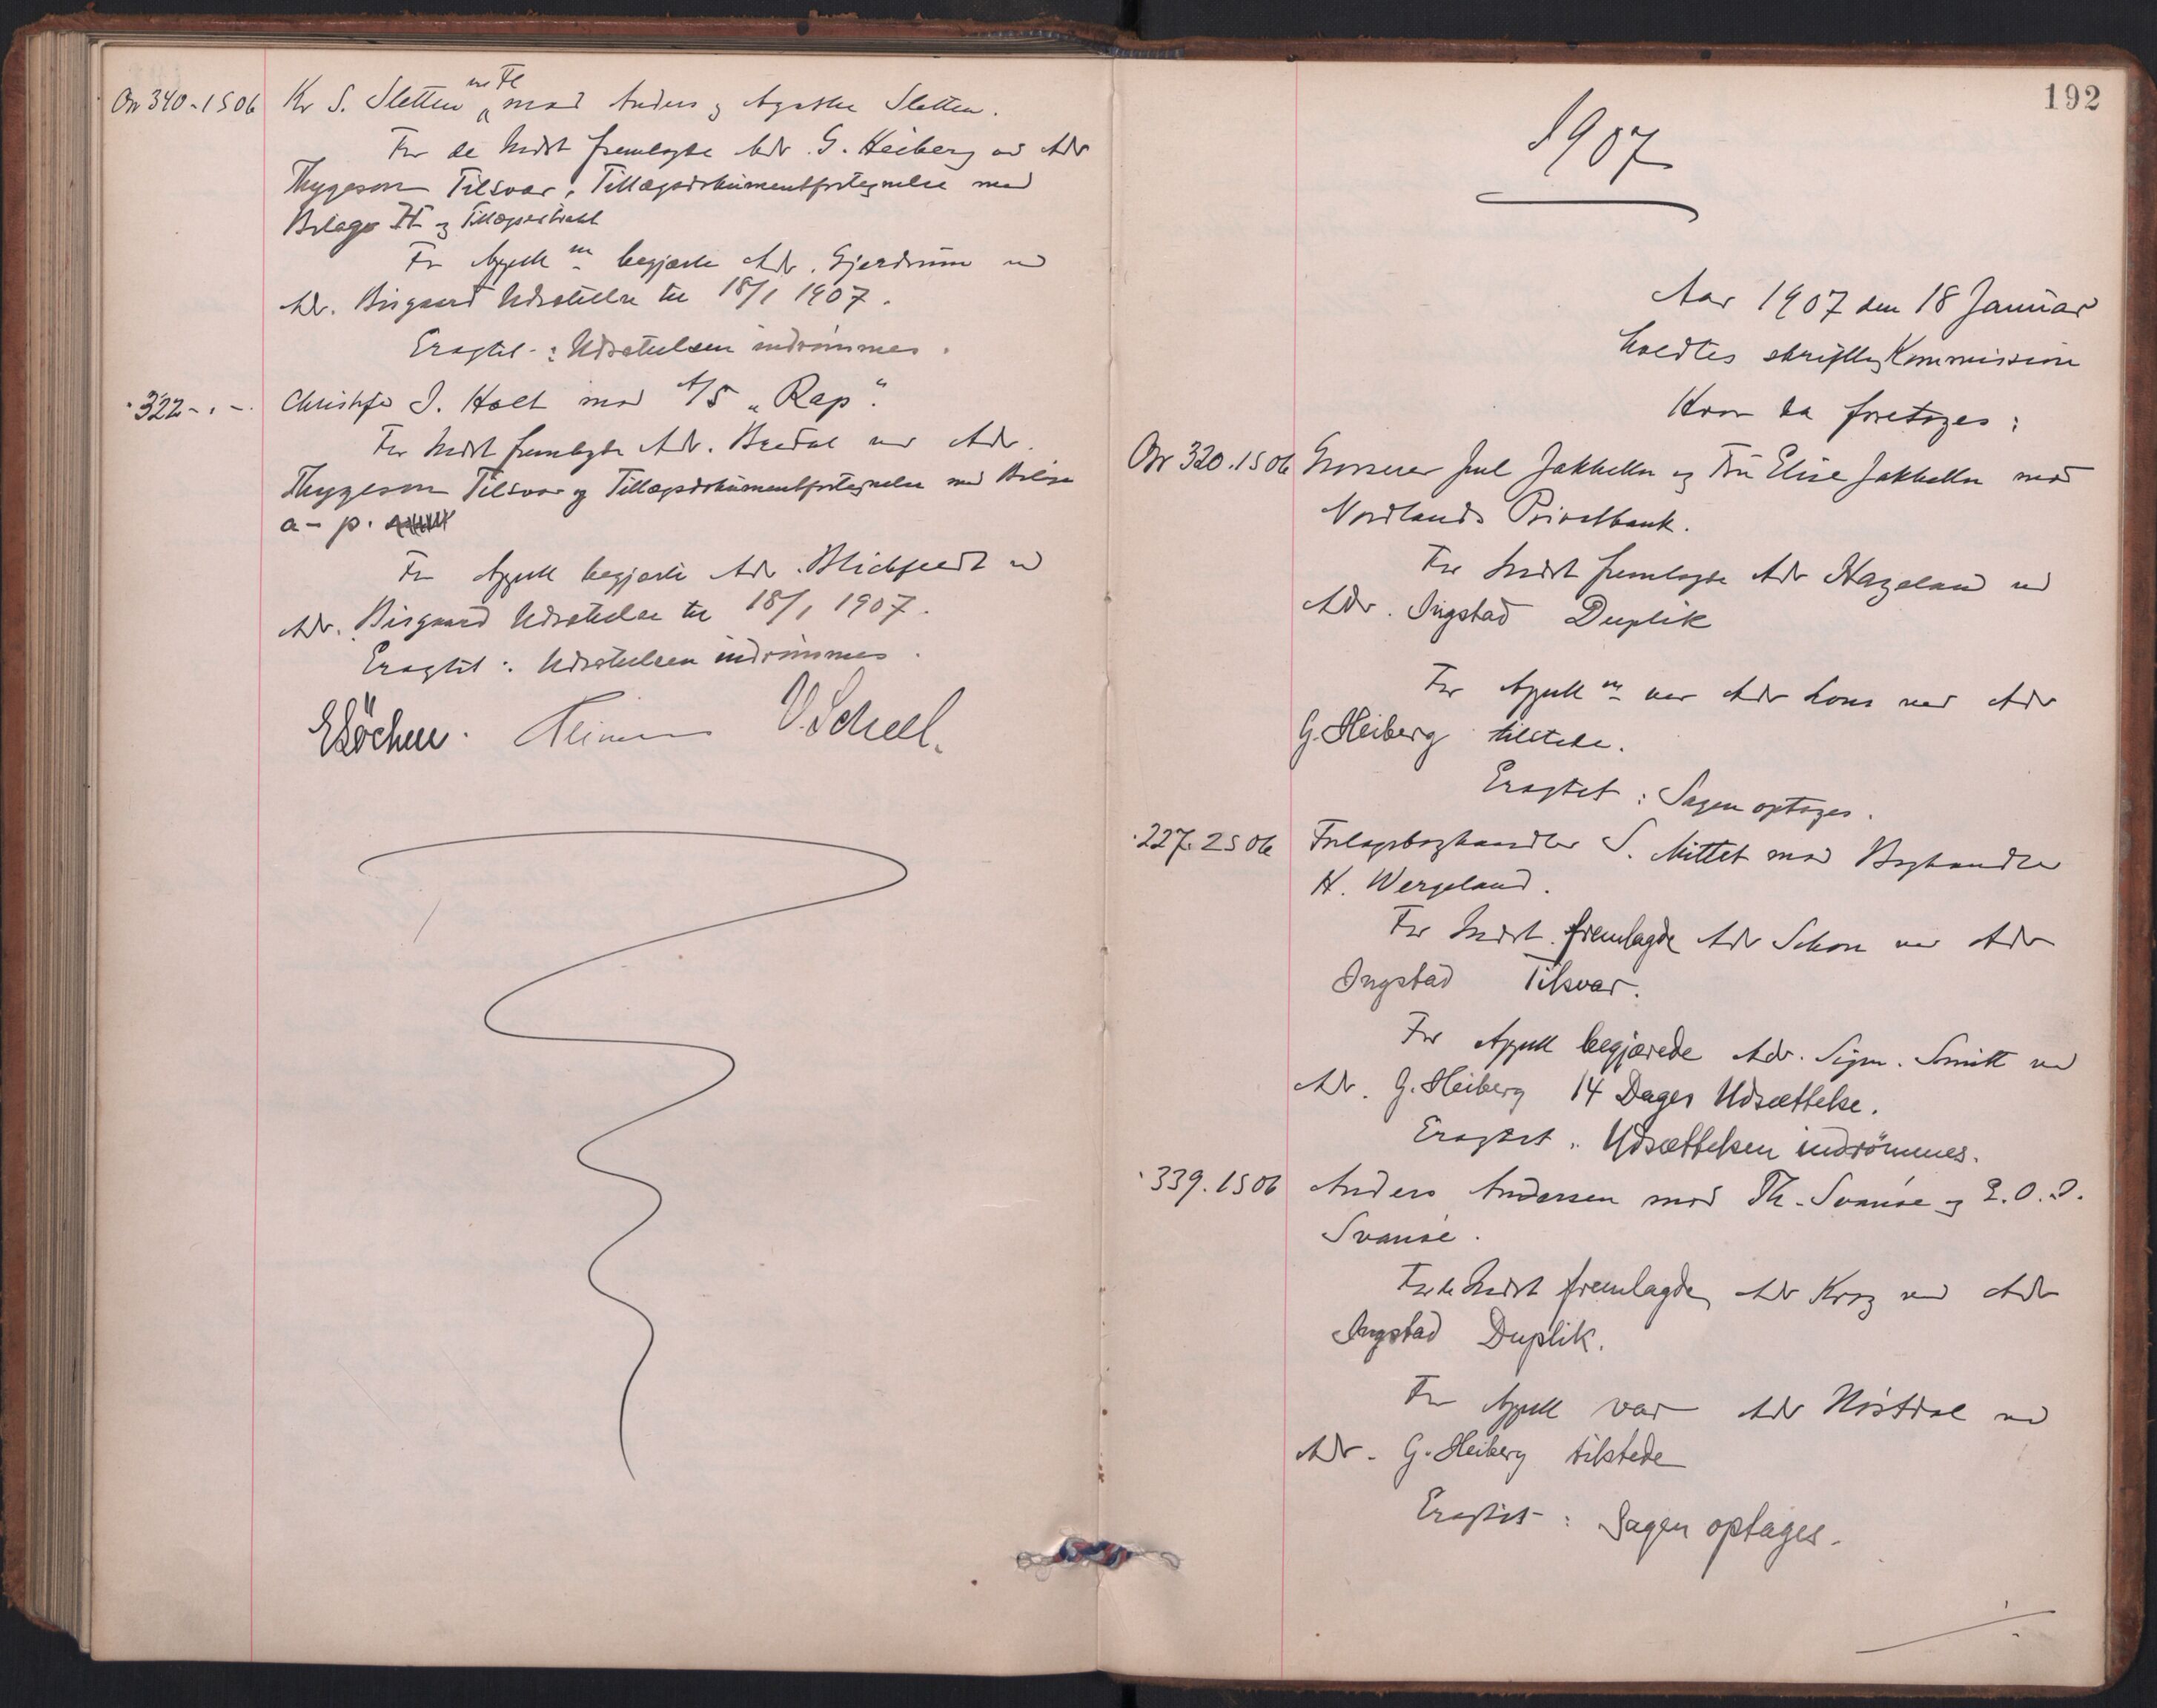 On 340-1 S 06 Kr S. Sletten m Fl mod Anders og Agathe Sletten.
For de Indst fremlagde Adv. G. Heiberg ved Adv
Thygeson Tilsvar, Tillægsdokumentfortegnelse med
Bilage H og Tillægsextrakt
For Appell m begjærte Adv. Gjerdrum ved
Adv. Bisgaard Udsættelse til 18/1 1907.
Eragtet: Udsættelsen indrömmes.
322 - " - Christofer I. Holt mod A/S „Rap".
For Indst fremlagde Adv. Bredal ved Adv.
Thygeson Tilsvar og Tillægsdokumentfortegnelse med Bilage
a - p.
For Appell begjærte Adv. Blichfeldt ved
Adv. Bisgaard Udsættelse til 18/1 1907.
Eragtet: Udsættelsen indrömmes.
V. Scheel.
192
1907
Aar 1907 den 18 Januar
holdtes skriftlig Kommission
Hvor da foretoges:
On 320. 1 S 06 Grosserer Juul Jakhelln og Fru Elise Jakhelln mod
Nordlands Privatbank.
For Indst fremlagde Adv Hazeland ved
Adv. Ingstad Duplik
For Appell m var Adv Lous ved Adv
G. Heiberg tilstede.
Eragtet: Sagen optages.
227. 2 S 06 Forlagsboghandler S. Mittet mod Boghandler
H. Wergeland.
For Indst. fremlagde Adv Schou ved Adv
Ingstad Tilsvar.
For Appell begjærede Adv. Sigm. Smith ved
Adv. G. Heiberg 14 Dages Udsættelse.
Eragtet: Udsættelsen indrömmes.
339. 1 S 06 Anders Andersen mod Th. Svanöe og E. O. D.
Svanöe.
For de Indst fremlagde Adv Krog ved Adv
Ingstad Duplik.
For Appell var Adv Nistdal ved
Adv. G. Heiberg tilstede
Eragtet: Sagen optages.